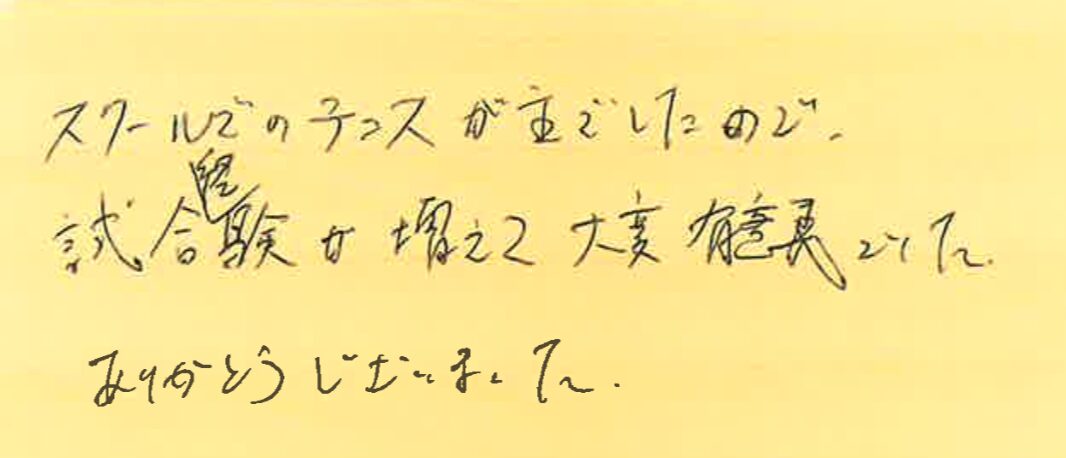 スクールでのテニスが主でしたので、
試合経験が増えて大変有意義でした。
ありがとうございました。